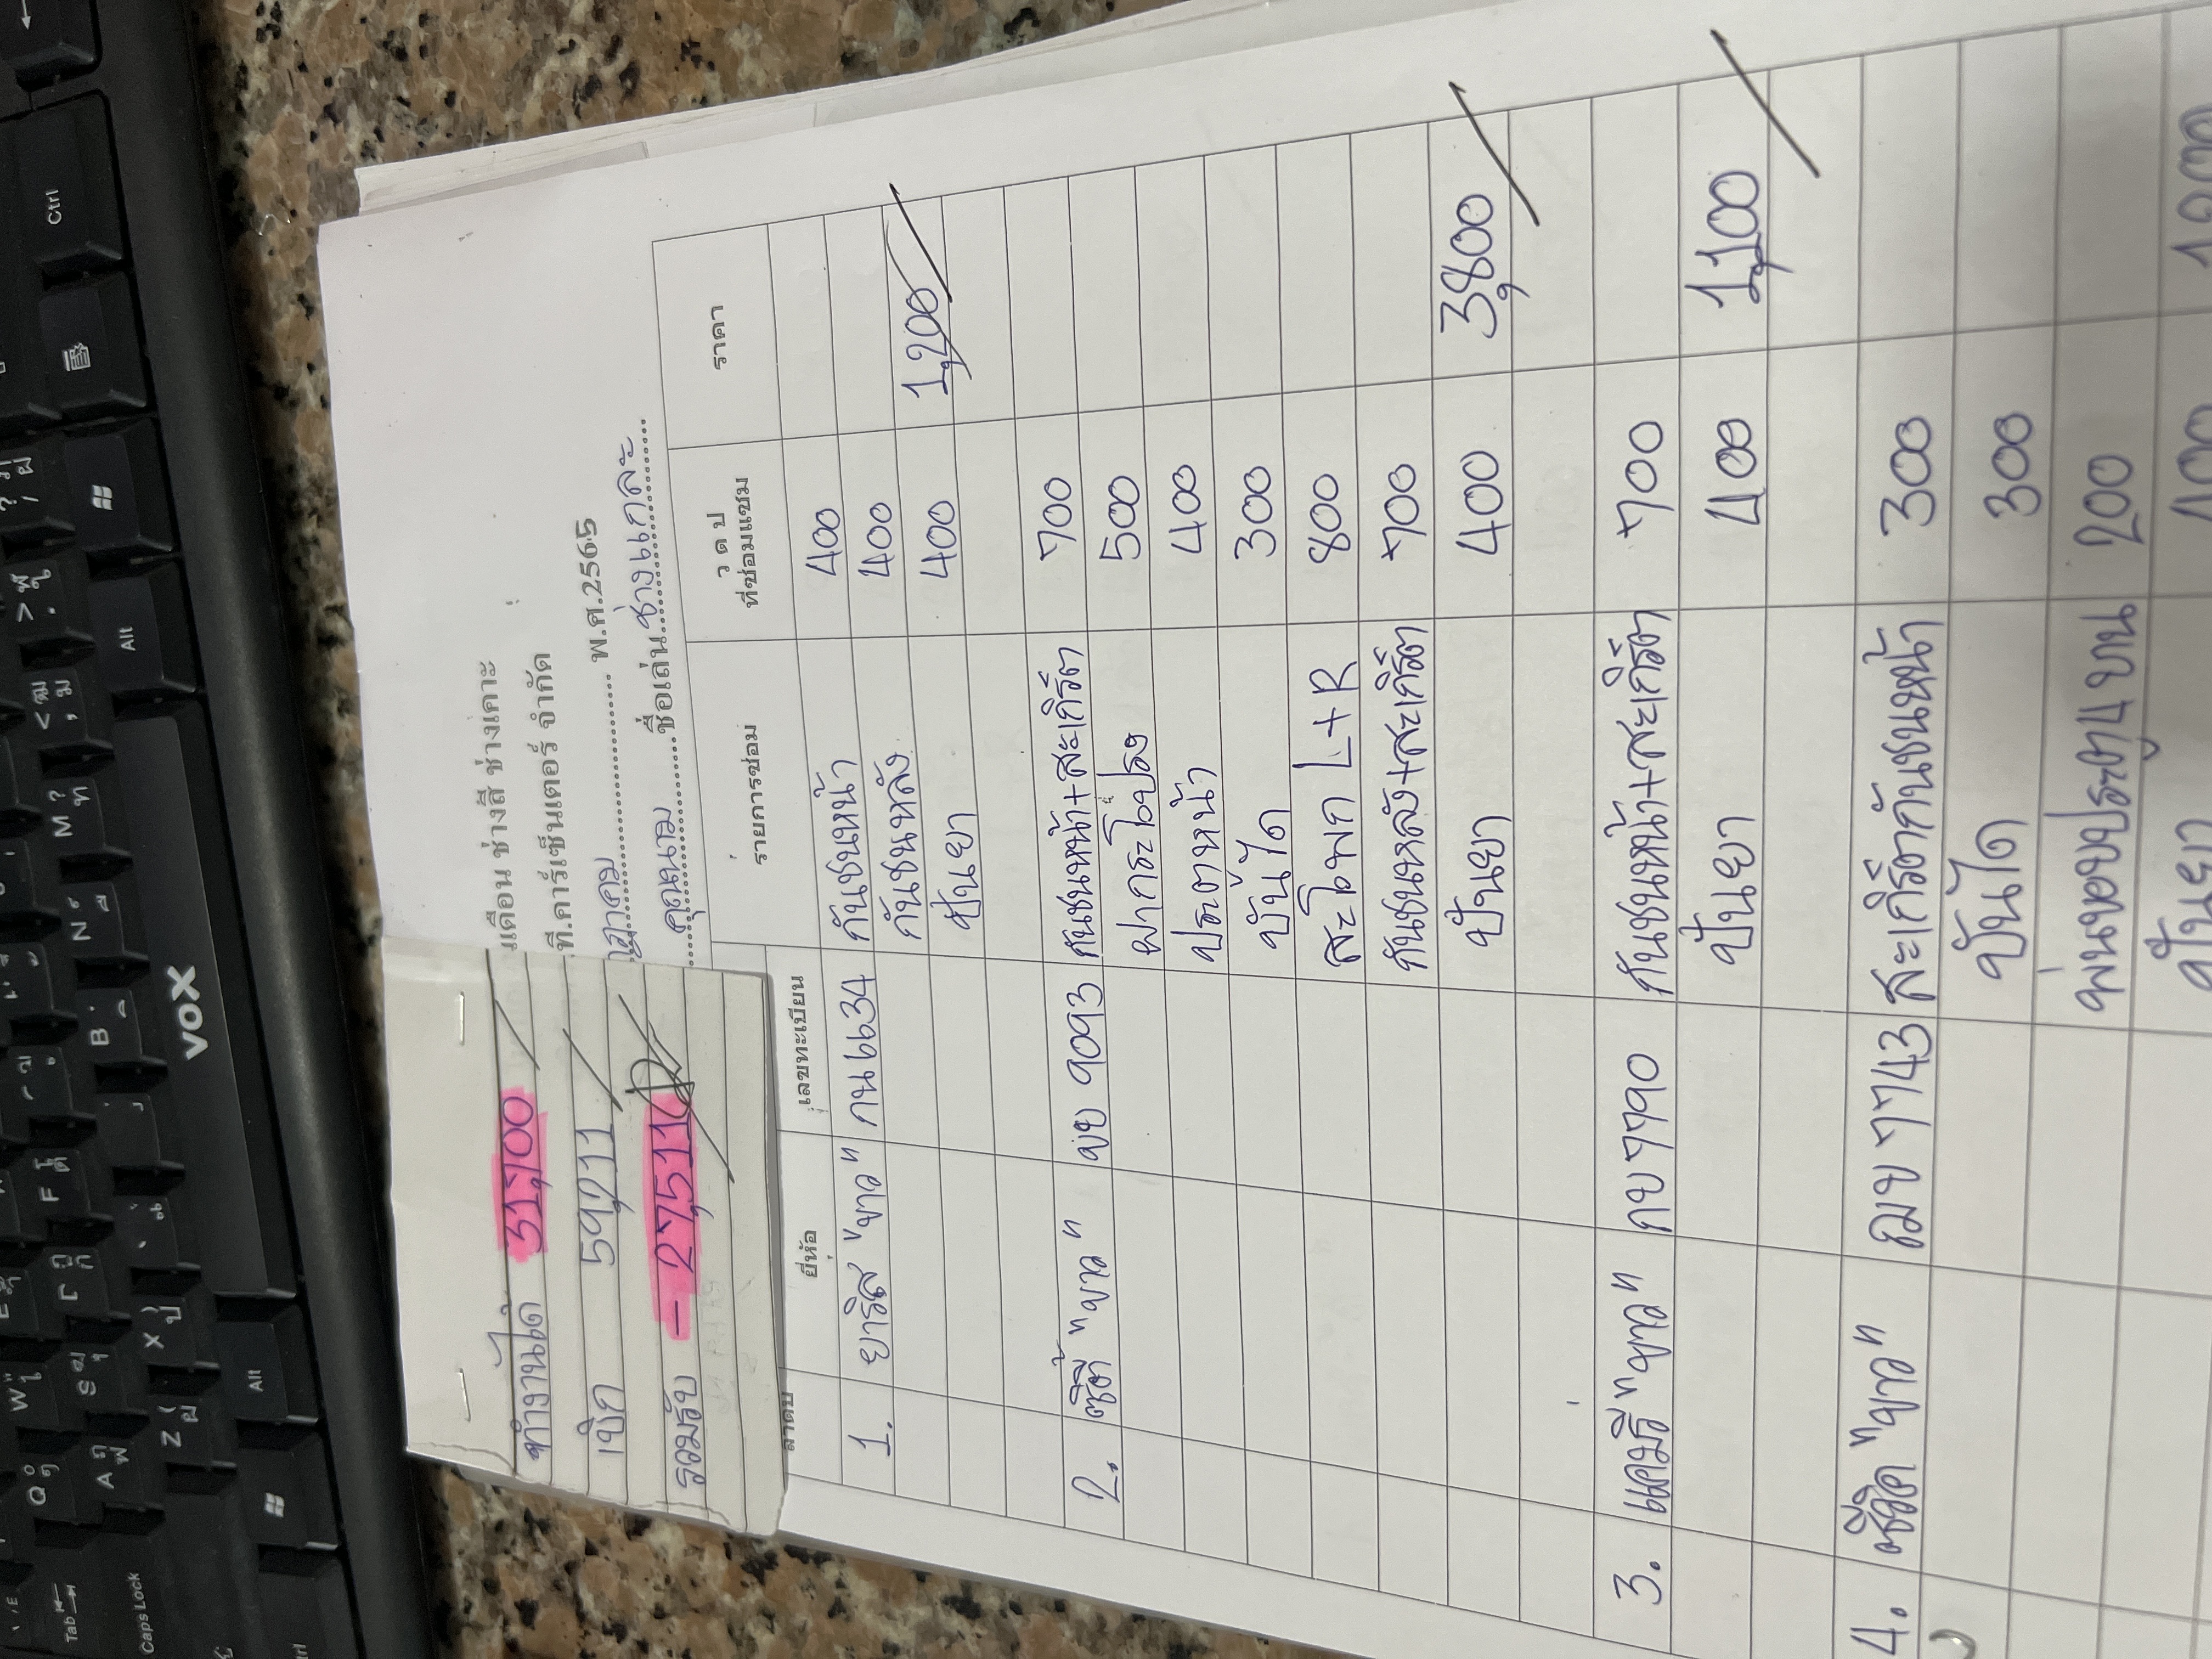 ทำงานได้ 31,700
เบิก 59,211
รวมรับ - 27,511
เดือน ช่างสี ช่างเคาะ
ที.คาร์เซ็นเตอร์ จำกัด
พ.ศ.2565
คุณนาม ชื่อเล่น ช่างแกละ
ลำดับ ยี่ห้อ เลขทะเบียน รายการซ่อม ว ด ป ที่ซ่อมแซม ราคา
1. ยาริส "ขาว" กน6634 กันชนหน้า 400
กันชนหลัง 400
ปั่นยา 400 1,200
2. ซิตี้ "ขาว" ขย 9093 กันชนหน้า+สะเกิร์ต 700
ฝากระโปรง 500
ประตูหน้า 400
บันได 300
สะโพก L+R 800
กันชนหลัง+สะเกิร์ต 700
ปั่นยา 400 3,800
3. แคมรี่ "ขาว" กบ 7790 กันชนหน้า+สะเกิร์ต 700
ปั่นยา 400 1,100
4. ซีวิค "ขาว" ฌข 7743 สะเกิร์ตกันชนหน้า 300
บันได 300
พ่นขอบประตู4บาน 200
ปั่นยา 400 1,200
VOX
Ctrl
Alt
Alt
Caps Lock
Tab